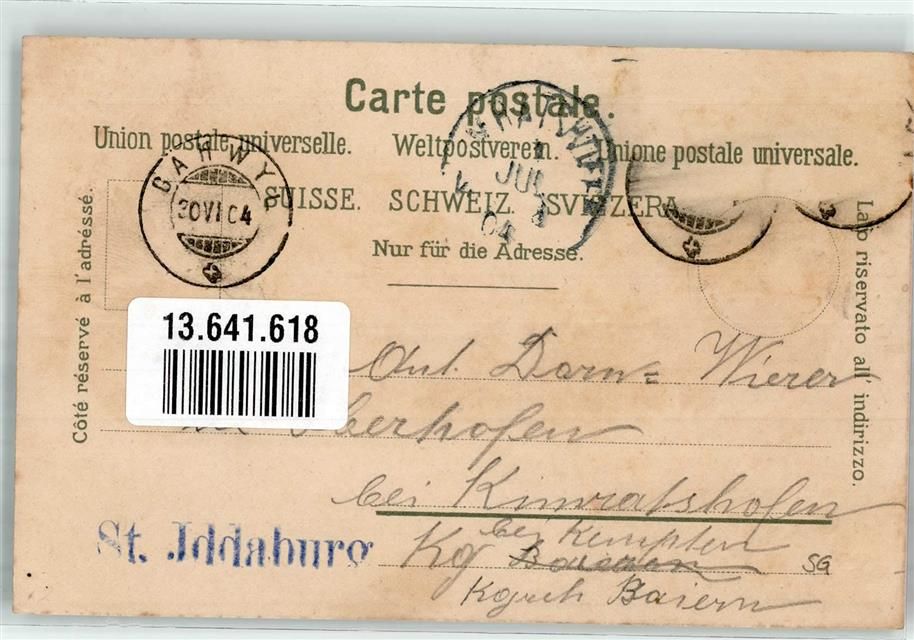 Carte postale.
Union postale universelle. Weltpostverein. Unione postale universale.
SUISSE. SCHWEIZ. SVIZZERA
Nur für die Adresse.
Côté réservé à l'adresse.
Lato riservato all' indirizzo.
GÄHWYL
30 VI 04
JUL
04
13.641.618
Ant. Dorn= Wierer
in Oberhofen
bei Kimratshofen
bei Kempten
Kg Baiern
Kgrch Baiern
St. Iddaburg
SG